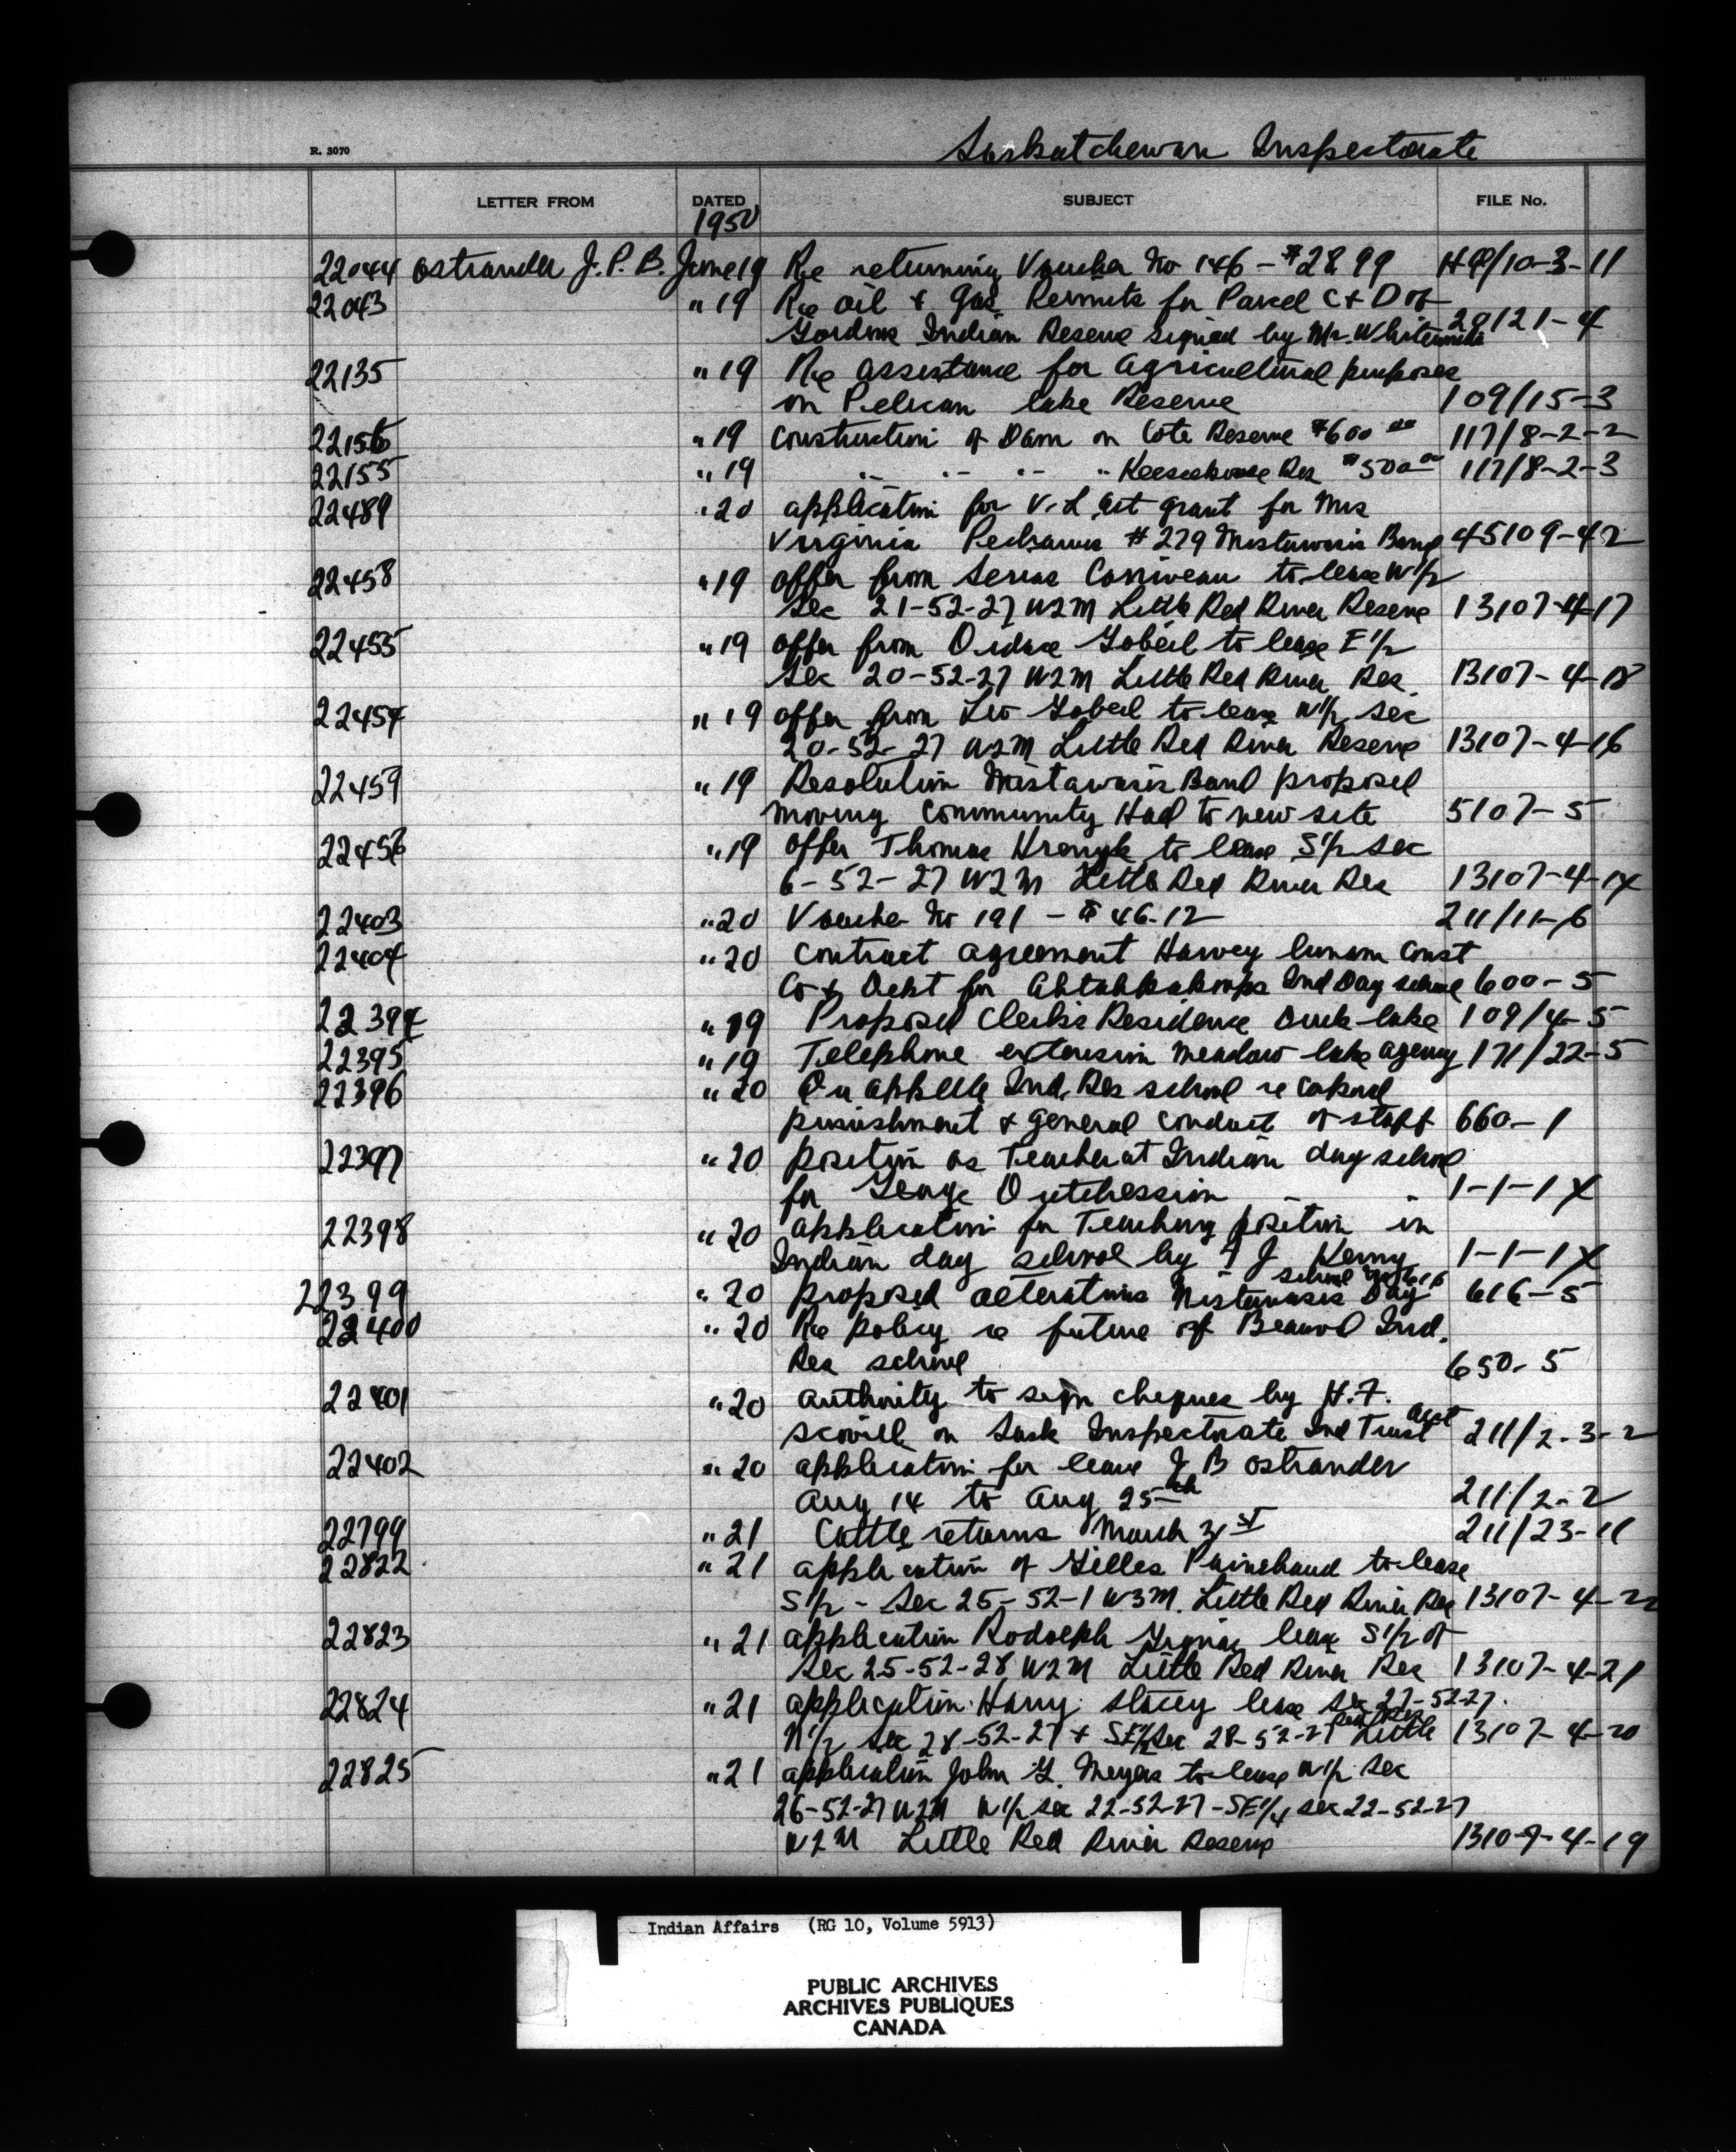 R. 3070
Saskatchewan Inspectorate
LETTER FROM DATED SUBJECT FILE No.
1950
22044 Ostrander J.P.B. June 19 Re returning Voucher No 146 - $28.99 HQ/10-3-11
22043 " 19 Re oil & gas Permits for Parcel C & D of
Gordons Indian Reserve signed by Mr. 29121-4
22135 " 19 Re assistance for agricultural purposes
on Pelican lake Reserve 109/15-3
22156 " 19 Construction of Dam on Cote Reserve $600 00 117/8-2-2
22155 " 19 " " " " Keeseekoose Res $500 00 117/8-2-3
22489 " 20 application for V.L. act grant for Mrs
Virginia # 279 Mistawasis Band 45109-42
22458 " 19 offer from Corriveau to lease W 1/2
Sec 21-52-27 W2M Little Red River Reserve 13107-4-17
22455 " 19 offer from Gobeil to lease E 1/2
Sec 20-52-27 W2M Little Red River Res. 13107-4-18
22454 " 19 offer from Leo Gobeil to lease W 1/2 Sec
20-52-27 W2M Little Red River Reserve 13107-4-16
22459 " 19 Resolution Mistawasis Band proposed
moving Community Hall to new site 5107-5
22456 " 19 offer Thomas to lease S 1/2 Sec
6-52-27 W2M Little Red River Res 13107-4-14
22403 " 20 Voucher No 191 - $46.12 211/11-6
22404 " 20 Contract agreement Harvey Const
Co & Dept for Ahtahkakoops Ind Day school 600-5
22394 " 19 Proposed Clerks Residence Duck lake 109/4-5
22395 " 19 Telephone extension Meadow lake agency 171/22-5
22396 " 20 Qu appelle Ind. Res school re
punishment & general conduct of staff 660-1
22397 " 20 position as Teacher at Indian day school
for George 1-1-1X
22398 " 20 application for Teaching position in
Indian day school by J Kenny 1-1-1X
school
22399 " 20 proposed alterations Mistawasis Day 616-5
22400 " 20 Re policy re future of Beauval Ind.
Res school 650-5
22401 " 20 authority to sign cheques by H.F.
acct
Scovill on Sask Inspectorate Ind Trust 211/2-3-2
22402 " 20 application for leave J B Ostrander
Aug 14 to Aug 25th 211/2-2
22799 " 21 Cattle returns March 31st 211/23-11
22822 " 21 application of Gilles Painchaud to lease
S 1/2 - Sec 25-52-1 W3M. Little Red River Res 13107-4-22
22823 " 21 application Rodolph lease S 1/2 of
Sec 25-52-28 W2M Little Red River Res 13107-4-21
22824 " 21 application Harry Stacey lease Sec 27-52-27.
N 1/2 Sec 28-52-27 & Sec 28-52-27 Little 13107-4-20
22825 " 21 application John Meyers to lease W 1/2 Sec
26-52-27 W2M W 1/2 Sec 22-52-27 - SE 1/4 Sec 22-52-27
W2M Little Red River Reserve 13107-4-19
Indian Affairs (RG 10, Volume 5913)
PUBLIC ARCHIVES
ARCHIVES PUBLIQUES
CANADA